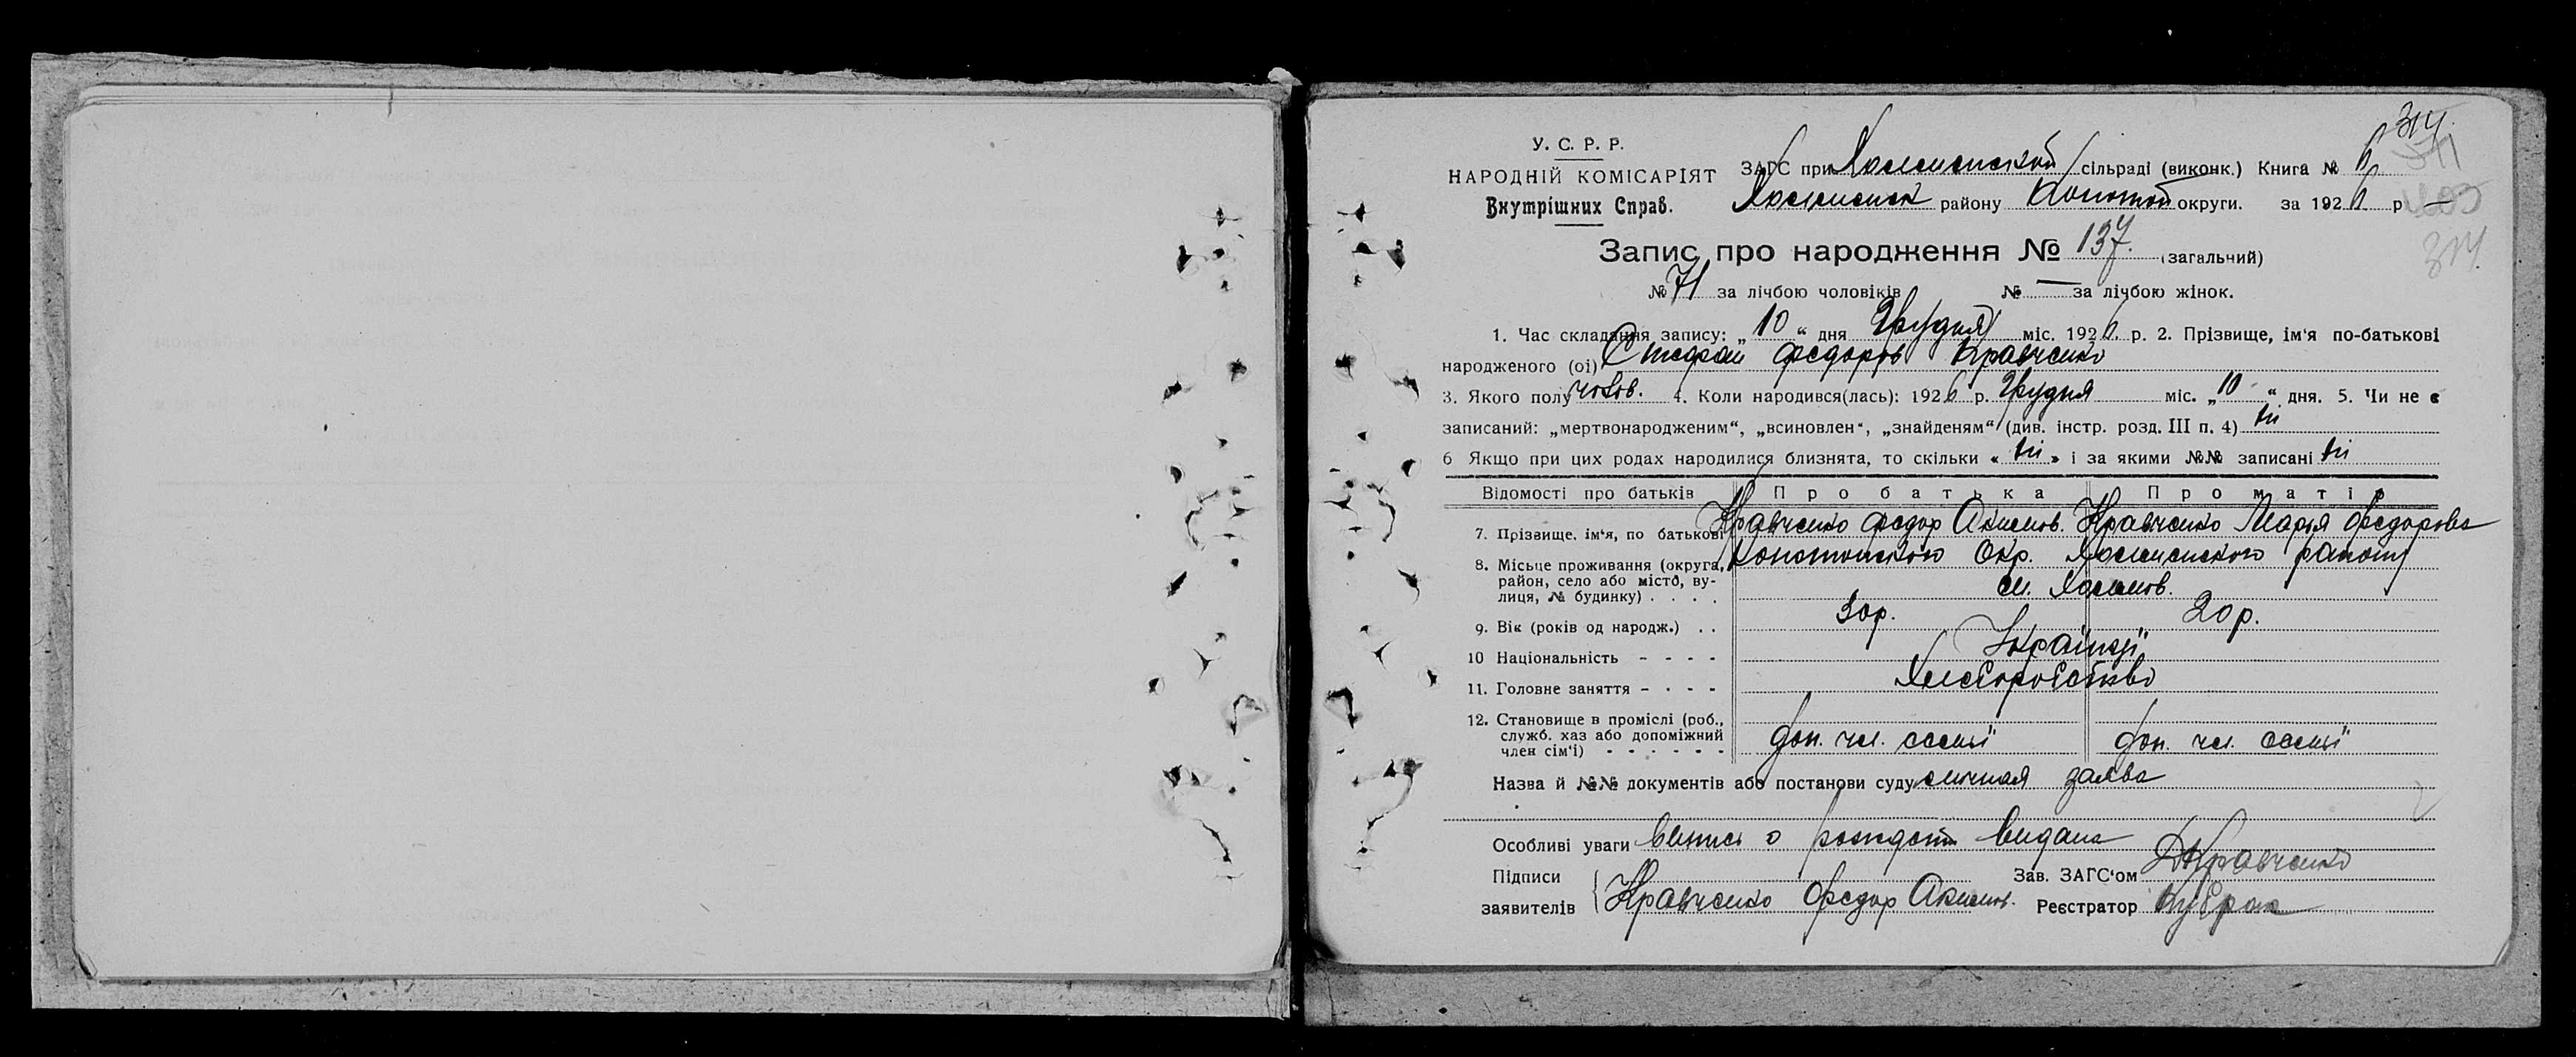 314.
У. С. Р. Р.
НАРОДНІЙ КОМІСАРІЯТ
Внутрішних Справ.
ЗАГС при сільраді (виконк.) Книга № 6
району Конотоп округи. за 1926 р
314
Запис про народження № 137. (загальний)
№ 71 за лічбою чоловіків № — за лічбою жінок.
1. Час складання запису: „ 10 “ дня Грудня міс. 1926 р. 2. Прізвище, ім‘я по-батькові
народженого (ої) Стефан Федоров Кравченко
3. Якого полу чолов. 4. Коли народився(лась): 1926 р. Грудня міс. „ 10 “ дня. 5. Чи не є
записаний: „мертвонародженим“, „всиновлен“, „знайденям“ (див. інстр. розд. III п. 4) ні
6 Якщо при цих родах народилися близнята, то скільки « ні » і за якими №№ записані ні
Відомості про батьків Про батька Про матір
7. Прізвище, ім‘я, по батькові Кравченко Федор Акимов. Кравченко Марія Федорова
8. Місьце проживання (округа, Конотопского Окр. района
район, село або місто, ву-
лиця, № будинку) . . . . м.
9. Вік (років од народж.) . . 30р. 20 р.
10 Національність - - - - Українці
11. Головне заняття - - - - Хлеборобство
12. Становище в промислі (роб.,
служб. хаз або допоміжний
член сім‘ї) - - - - - - доп. чл. семьї доп. чл. семьї
Назва й №№ документів або постанови суду личная заява
Особливі уваги о рождении видана
Підписи Зав. ЗАГС‘ом Кравченко
заявителів Кравченко Федор Акимов. Реєстратор Кубрак